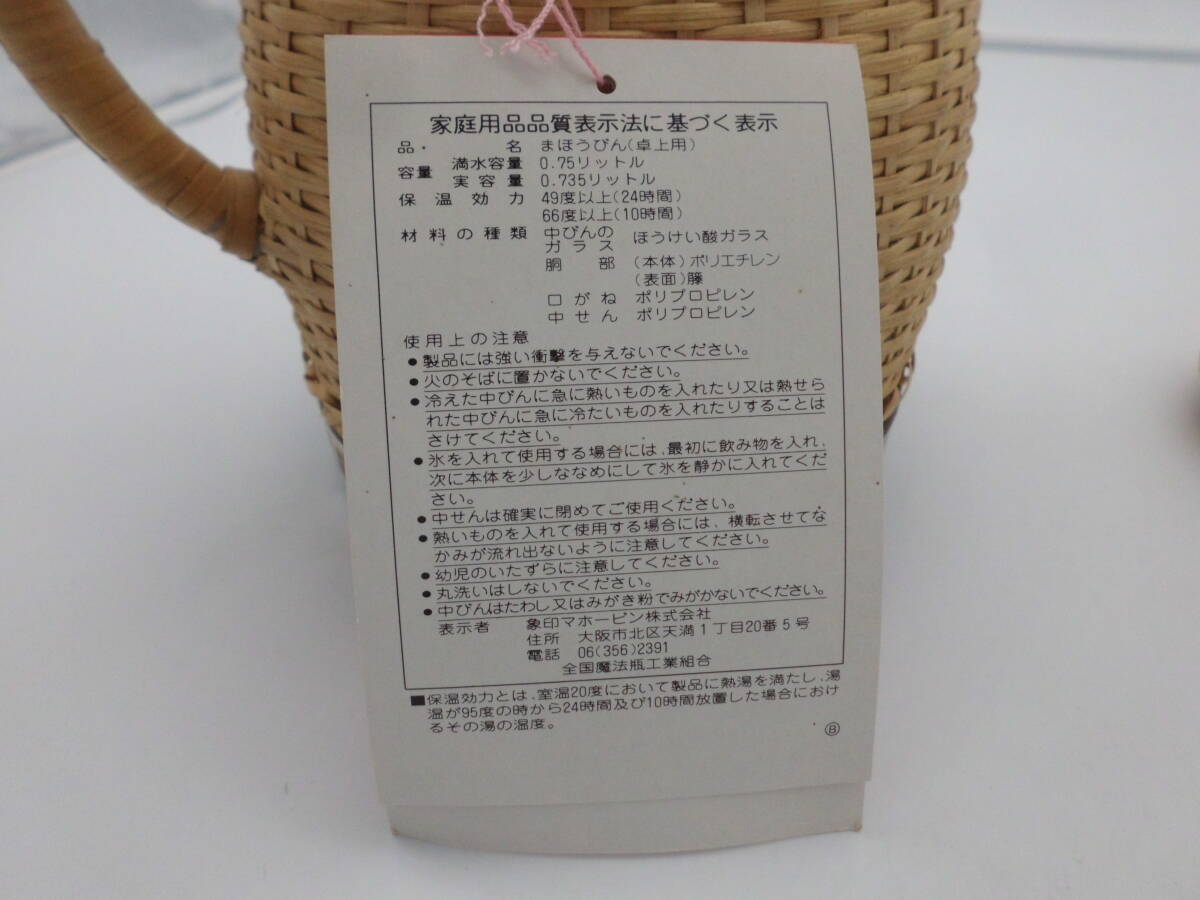 家庭用品品質表示法に基づく表示
品・名 まほうびん(卓上用)
容量 満水容量 0.75リットル
実容量 0.735リットル
保温効力 49度以上(24時間)
66度以上(10時間)
材料の種類 中びんのガラス ほうけい酸ガラス
胴部 (本体)ポリエチレン
(表面)籐
口がね ポリプロピレン
中せん ポリプロピレン
使用上の注意
●製品には強い衝撃を与えないでください。
●火のそばに置かないでください。
●冷えた中びんに急に熱いものを入れたり又は熱せら
れた中びんに急に冷たいものを入れたりすることは
さけてください。
●氷を入れて使用する場合には、最初に飲み物を入れ、
次に本体を少しななめにして氷を静かに入れてくだ
さい。
●中せんは確実に閉めてご使用ください。
●熱いものを入れて使用する場合には、横転させてな
かみが流れ出ないように注意してください。
●幼児のいたずらに注意してください。
●丸洗いはしないでください。
●中びんはたわし又はみがき粉でみがかないでください。
表示者 象印マホービン株式会社
住所 大阪市北区天満1丁目20番5号
電話 06(356)2391
全国魔法瓶工業組合
■保温効力とは、室温20度において製品に熱湯を満たし、湯
温が95度の時から24時間及び10時間放置した場合におけ
るその湯の温度。
Ⓑ